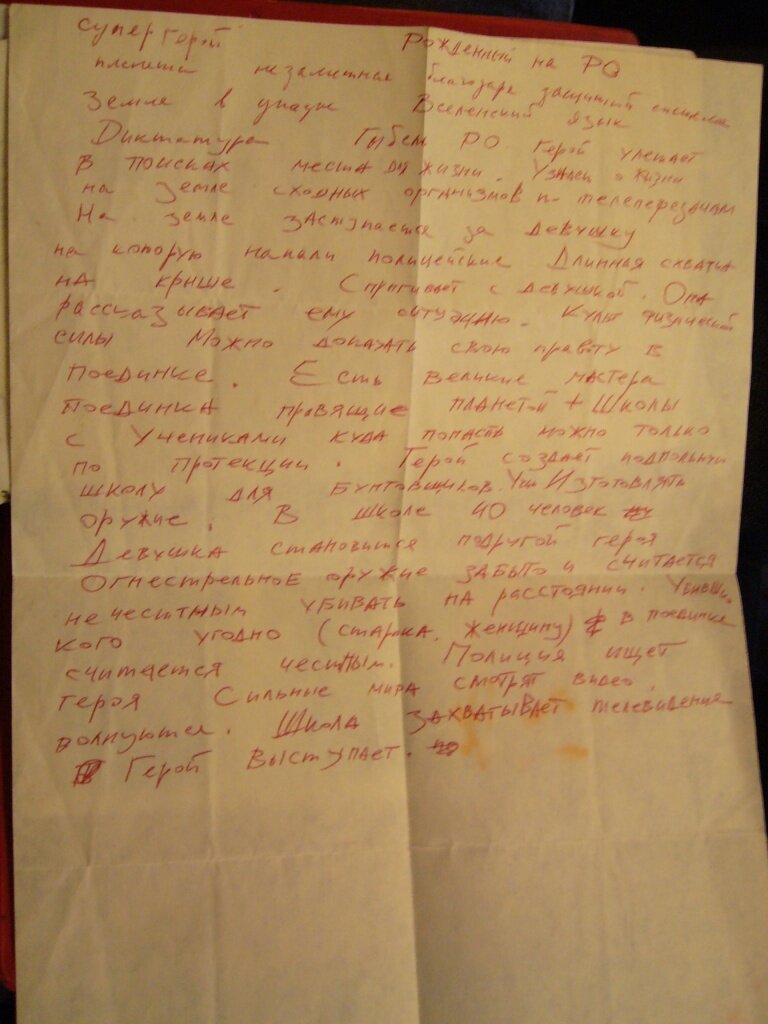 супер герой Рожденный на РО
планета незаметная благодаря защитной системе
Земле в упадке Вселенский язык
Диктатура Гибель РО Герой улетает
в поисках места для жизни. Узнает о жизни
на земле сходных организмов по телепередачам
На земле заступается за девушку
на которую напали полицейские Длинная схватка
на крыше. Спрыгивает с девушкой. Она
рассказывает ему ситуацию. Культ физической
силы Можно доказать свою правоту в
поединке. Есть великие мастера
поединка правящие планетой + Школы
с учениками куда попасть можно только
по протекции. Герой создает подпольную
школу для Бунтовщиков. Учит Изготовлять
оружие. В школе 40 человек
Девушка становится подругой героя
Огнестрельное оружие забыто и считается
нечестным убивать на расстоянии. Убивать
кого угодно (старика, женщину) в поединке
считается честным. Полиция ищет
героя Сильные мира смотрят видео,
волнуются. Школа захватывает телевидение
Герой выступает.